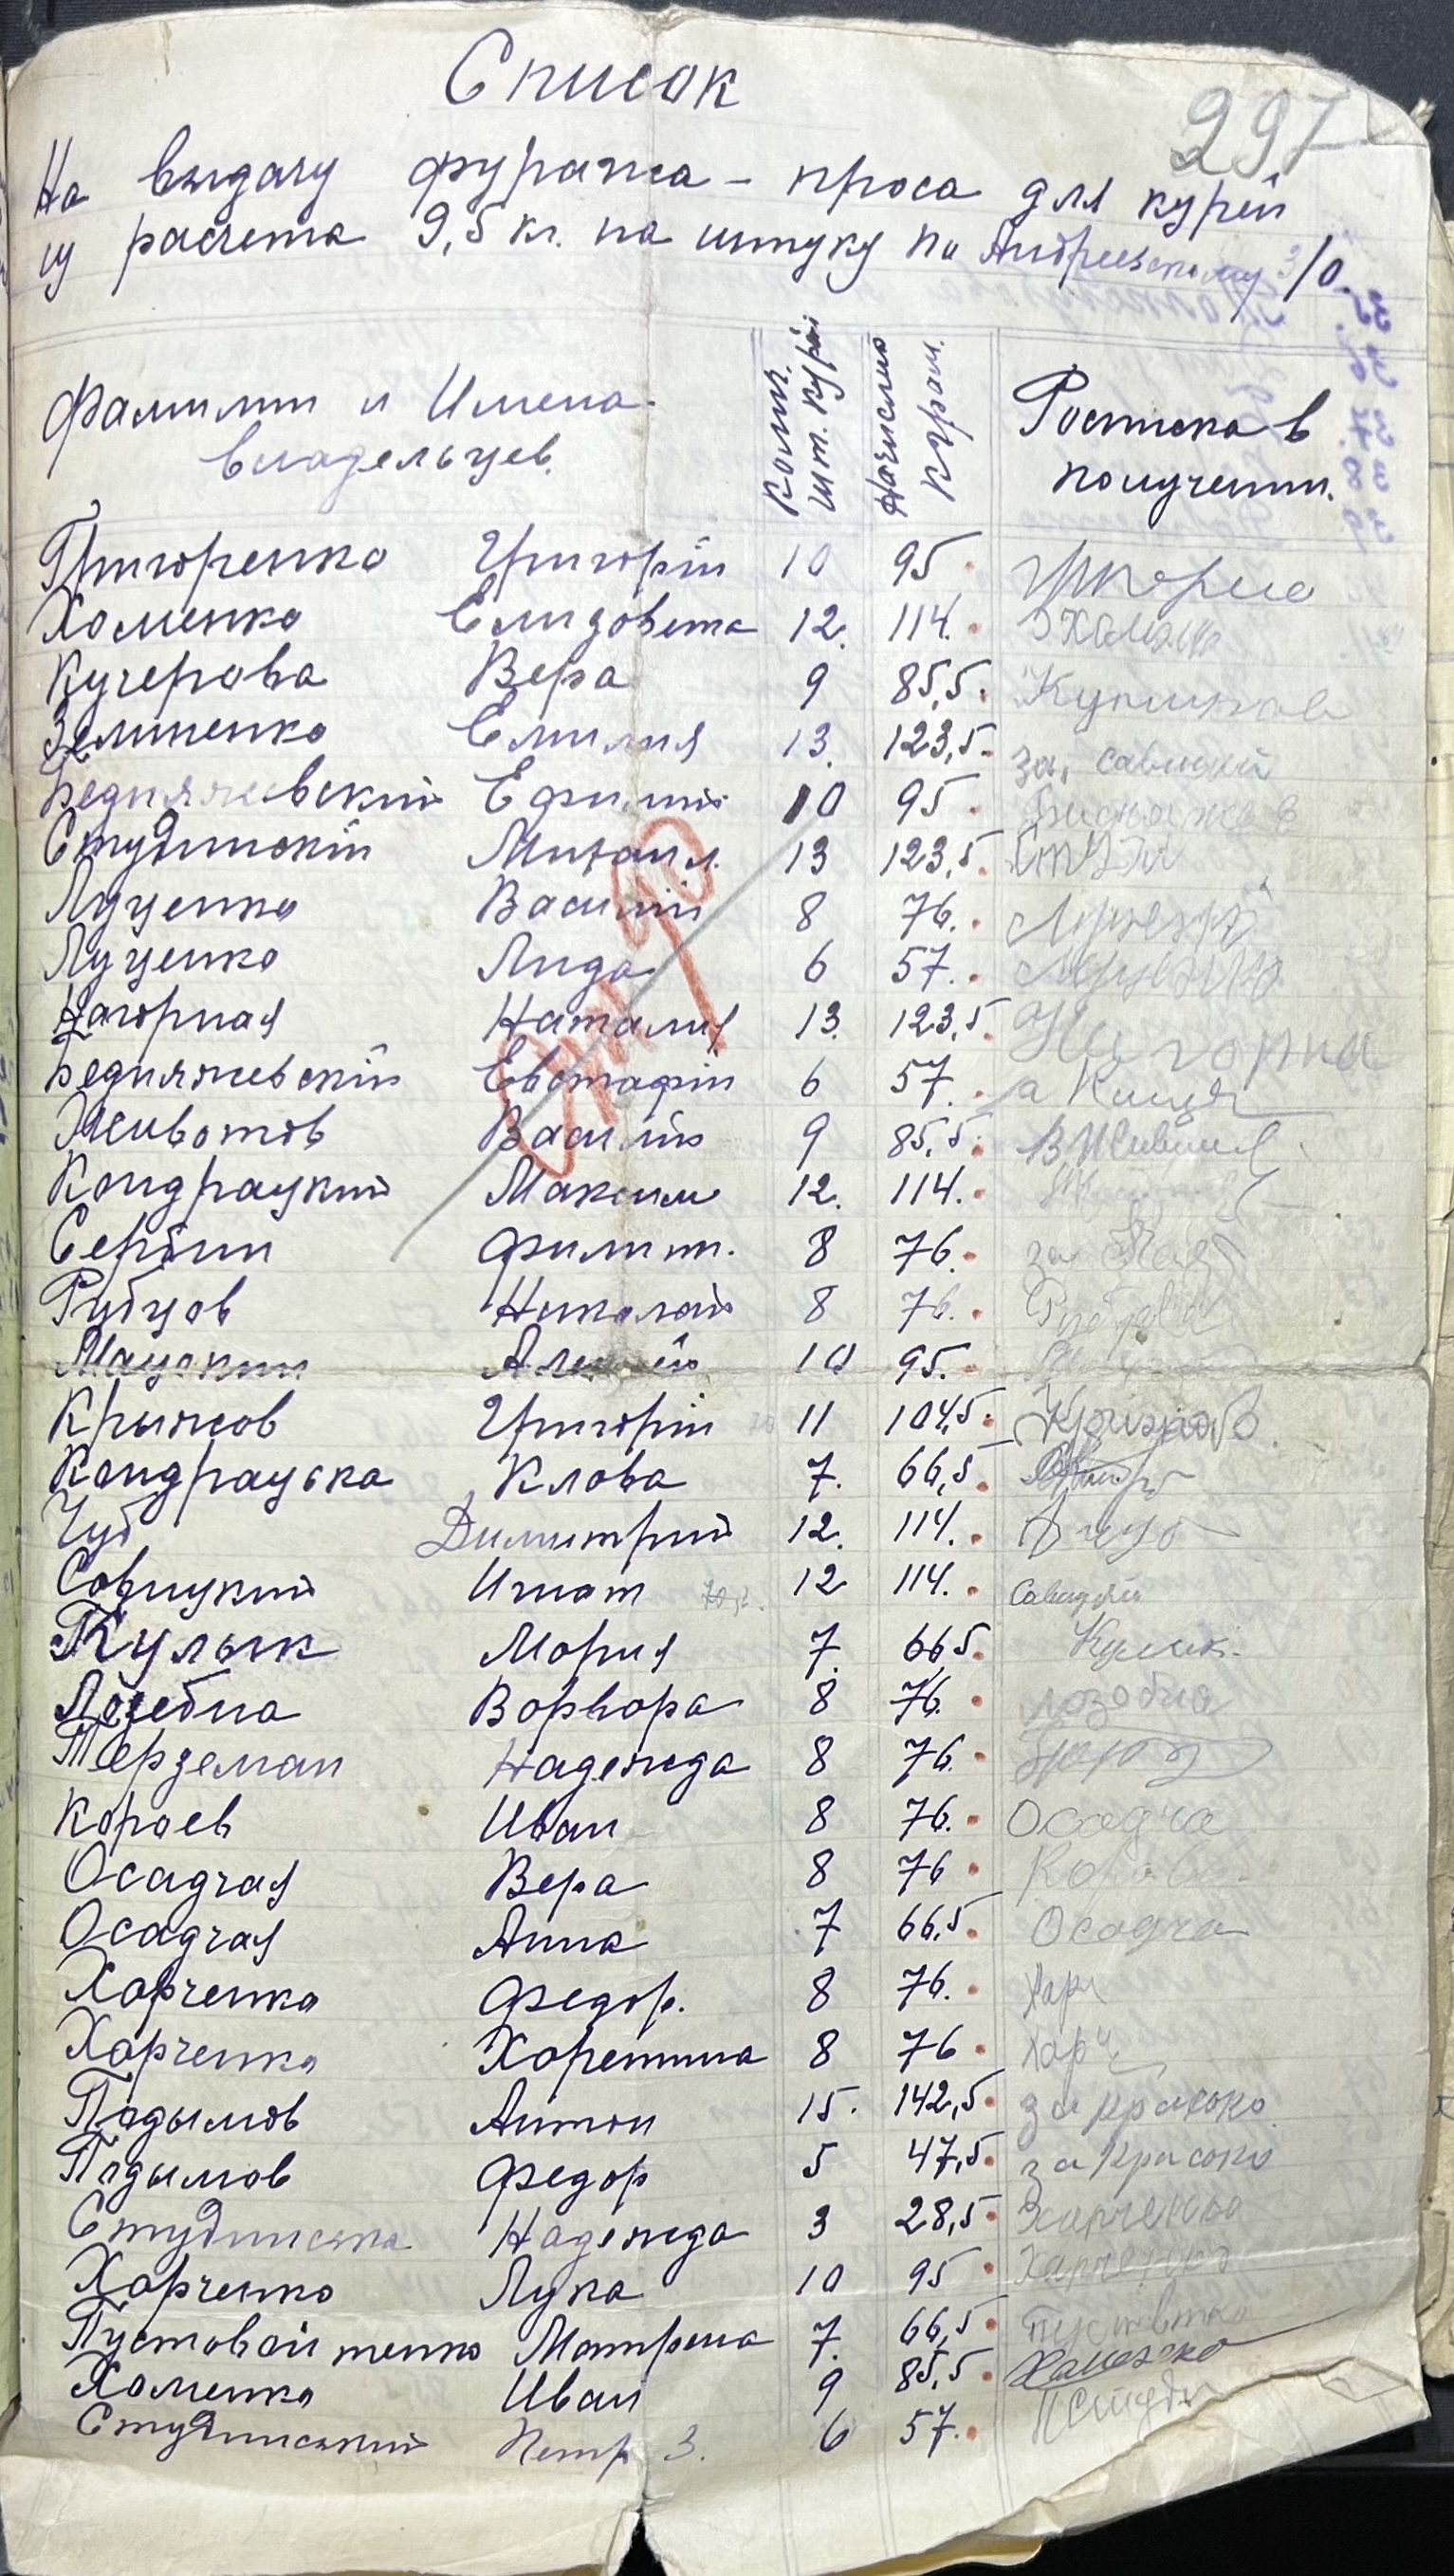 Список
297
На выдачу фуража - проса для курей
из расчета 9,5 кг. на штуку по Андреевскому з/о.
Фамилии и Имена владельцев. Колич. шт. курей Начислено К грам. Роспика в получении.
Григоренко Григорій 10 95
Хоменко Елизовета 12. 114.
Кучерова Вера 9 85,5.
Зелиненко Емилия 13. 123,5. за, савицкий
Бедняжевский Ефимий 10 95
Студинскій Михаил 13 123,5.
Луценко Василий 8 76.
Луценко Лида 6 57.
Нагорная Наталия 13. 123,5. Нагорна
Бедняжевскій Евстафій 6 57.
Животов Василий 9 85,5.
Кондрацкий Максим 12. 114.
Сербин Филипп. 8 76. за
Рубцов Николай 8 76. Рубцова
Мацокин Алексей 10 95.
Крыжов Григорій 11 104,5.
Кондрацка Клова 7. 66,5
Чуб Димитрий 12. 114. Чуб
Совицкий Игнат 12 114. Савицкий
Кулык Мория 7. 66,5. Кулик.
Лозебна Ворвора 8 76. лозобна
Терземан Надежда 8 76.
Короев Иван 8 76. Осадча
Осадчая Вера 8 76
Осадчая Анна 7 66,5. Осадча
Хорченко Федор. 8 76. Хар
Хорченко Хоретина 8 76 Харч
Подымов Антон 15. 142,5. за красоко
Подымов Федор 5 47,5. за красоко
Студинска Надежда 3 28,5. Харченко
Хорченко Лука 10 95 Харченко
Пустовойтенко Матрена 7. 66,5.
Хоменко Иван 9 85,5. Хоменко
Студинский Петр З. 6 57. Студ